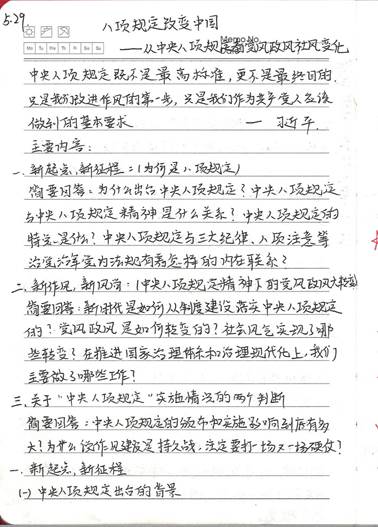 5.29
八项规定改变中国
Memo No.
Mo Tu We Th Fr Sa Su
——从中央八项规定看党风政风社风变化
中央八项规定既不是最高标准，更不是最终目的，
只是我们改进作风的第一步，只是我们作为共产党人应该
做到的基本要求 — 习近平.
主要内容：
一、新起点、新征程：(为何是八项规定)
简要回答：为什么出台中央八项规定？中央八项规定
与中央八项规定精神是什么关系？中央八项规定的
特点是什么？中央八项规定与三大纪律、八项注意等
治党治军党内法规有着怎样的内在联系？
二、新作风，新风尚：(中央八项规定精神下的党风政风大转变)
简要回答：新时代是如何从制度建设落实中央八项规定
的？党风政风是如何转变的？社会风气实现了哪
些转变？在推进国家治理体系和治理现代化上，我们
主要做了哪些工作？
三、关于"中央八项规定"实施情况的两个判断
简要回答：中央八项规定的颁布和实施影响到底有多
大？为什么说作风建设是持久战，注定要打一场又一场硬仗？
一、新起点、新征程
(一) 中央八项规定出台的背景